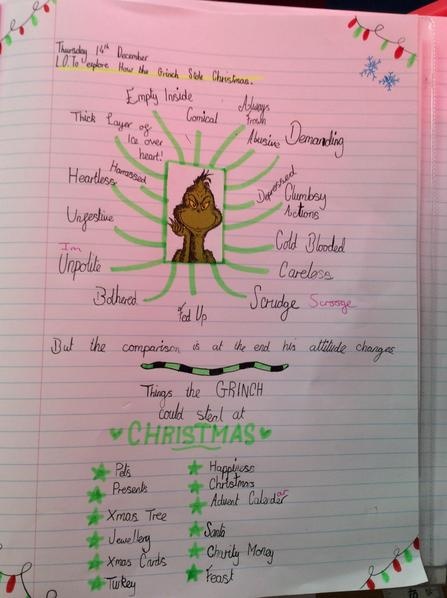 Thursday 14th December
L.O. To explore How the Grinch Stole Christmas.
Empty Inside
Comical
Always
frown
Thick Layer of
Ice over
heart!
Abusive
Demanding
Heartless
Harrassed
Depressed
Clumsy
Actions
Unfestive
Cold Blooded
Im
Unpolite
Careless
Bothered
Fed Up
Scrudge Scrooge
But the comparison is at the end his attitude changes
Things the GRINCH
could steal at
CHRISTMAS
Pets
Presents
Xmas Tree
Jewellery
Xmas Cards
Turkey
Happiness
Christmas
Advent Calender ar
Santa
Charity Money
Feast